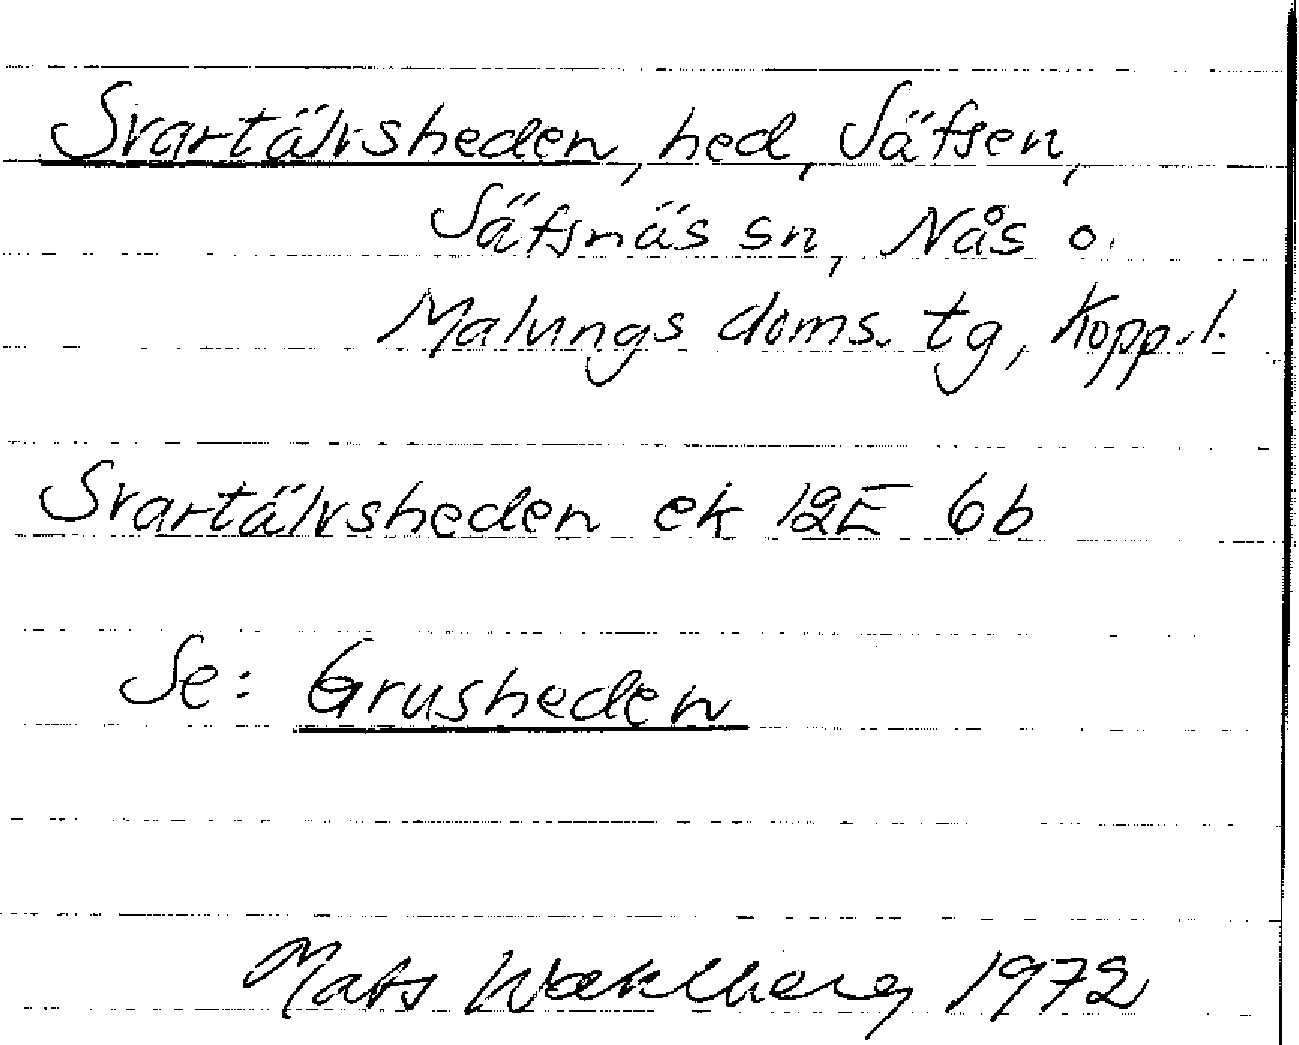 Svartälvsheden, hed, Säfsen,
Säfsnäs sn, Nås o.
Malungs doms. tg, Kopp.l.
Svartälvsheden ek 12E 6b
Se: Grusheden
Mats Wahlberg 1972